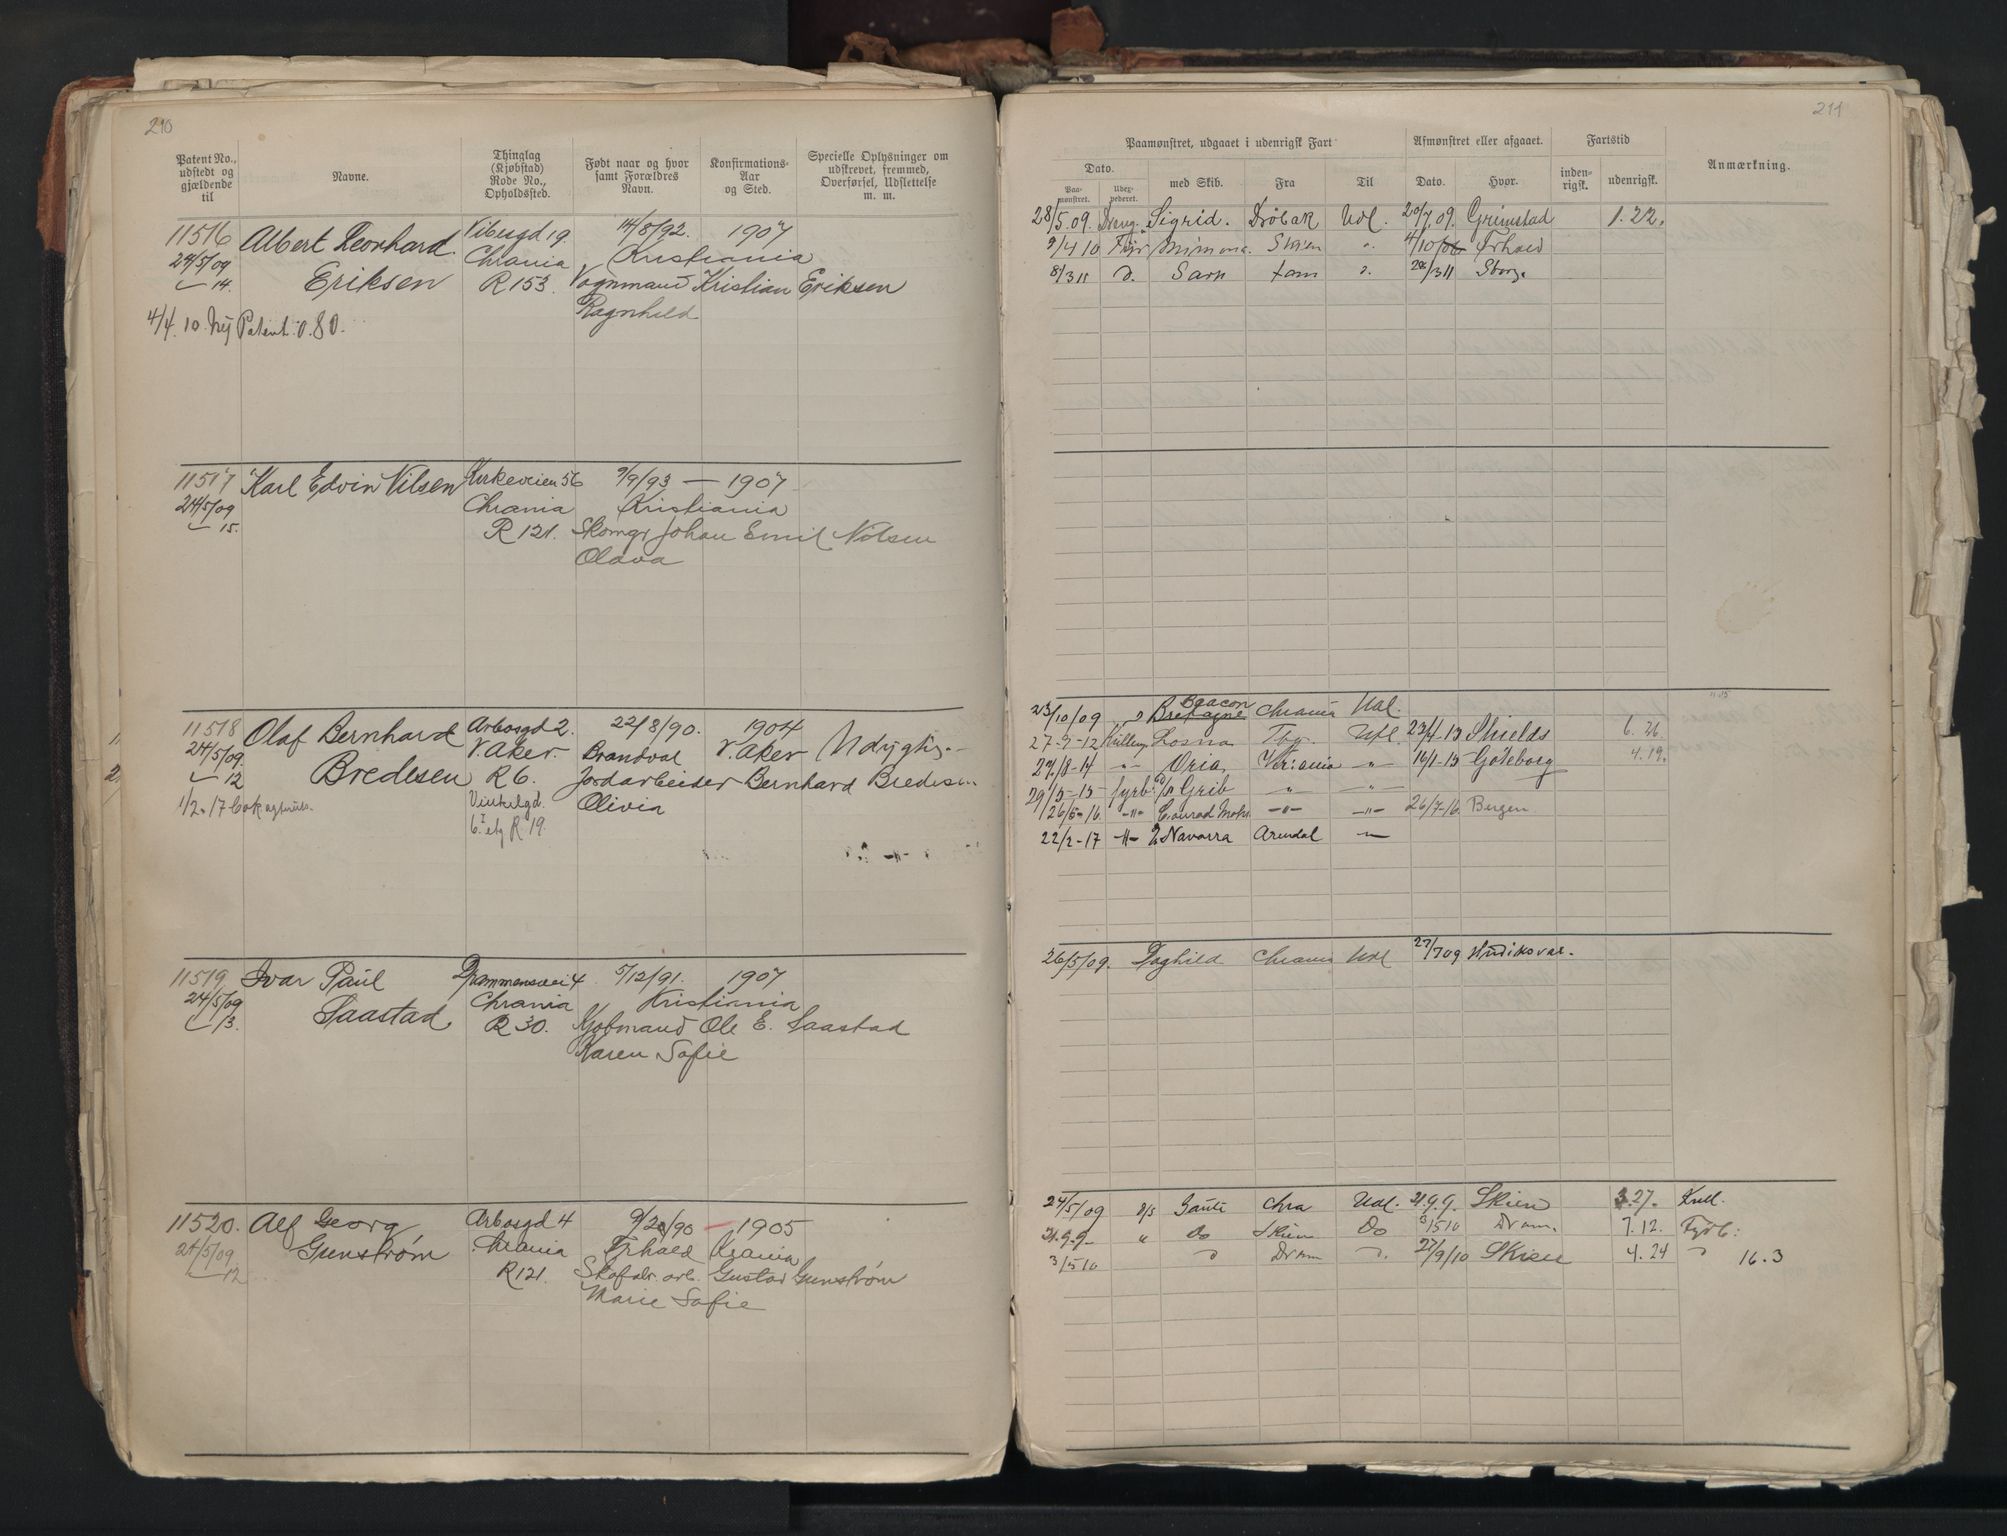 210
Patent No., udstedt og gjældende til
Navne.
Thinglag (Kjøbstad) Rode No., Opholdssted.
Født naar og hvor samt Forældres Navn.
Konfirmations-Aar og Sted.
Specielle Oplysninger om udskrevet, fremmed, Overførsel, Udslettelse m. m.
11516 Albert Leonhard Vibesgd 19. 14/8/92. 1907
24/5/09 Eriksen Chrania Kristiania
14. R 153. Vognmand Kristian Eriksen
Ragnhild
4/4. 10. Nyj Patent. 0.80.
11517 Karl Edvin Nilsen Kirkeveien 56 9/9/93 — 1907
24/5/09 Chrania Kristiania
15. R 121. Skomgr Johan Emil Nilsen
Olava
11518 Olaf Bernhard Arbosgd 2. 22/8/90. 1904 Udygtig.
24/5/09. Bredesen V. Aker. Brandval V. Aker
12 R 6. Jordarbeider Bernhard Bredesen
1/2-17 Olivia
R 19.
11519 Ivar Paul Drammensvei 4 5/12/91. 1907
24/5/09 Saastad Chrania Kristiania
13. R 30. Kjøbmand Ole E. Saastad
Karen Sofie
11520. Alf Georg Arbosgd 4 — 1905
24/5/09 Gunstrøm Chrania Frhald Krania
12 R 121. Gustav Gunstrøm
Marie Sofie
211
Paamønstret, udgaaet i udenrigsk Fart
Afmønstret eller afgaaet.
Fartstid
Anmærkning.
Dato.
Paa-mønstret.
med Skib.
Fra
Til
Dato.
Hvor.
inden-rigsk.
udenrigsk.
28/5.09. Dreng. Sigrid. Drøbak Udl. 20/7.09. Grimstad 1.22.
9/4 10 Mimona. Skien " 4/10 Frhald
8/3 11 D. Sarn 28/3 11 Sborg.
23/10/09 " Bretagne Beacon Chrania Udl.
27-9-12 Losna Tbg. Udl. 23/4-13 Shields 6. 26.
27/8-14 -"- Oria Kr:ania -"- 16/1-15 Göteborg 4.19.
29/5-15- fyrb. D/S Grib -"- -"-
26/5-16. -"- Conrad Mohr -"- -"- 26/7-16. Bergen
22/2-17 -"- Navarra Arendal -"-
26/5/09. Daghild Chrania Udl 27/7 09 Hudiksval.
24/5/09 Gante Chra Udl. 21.9.9. Skien 3.27. Kull.
21.9.9- " Do Skien Do 3/5 10 Dram. 7.12. Fyrb:
3/5 10 " Dram ". 27/9/10 Skien 4.24 " 16.3